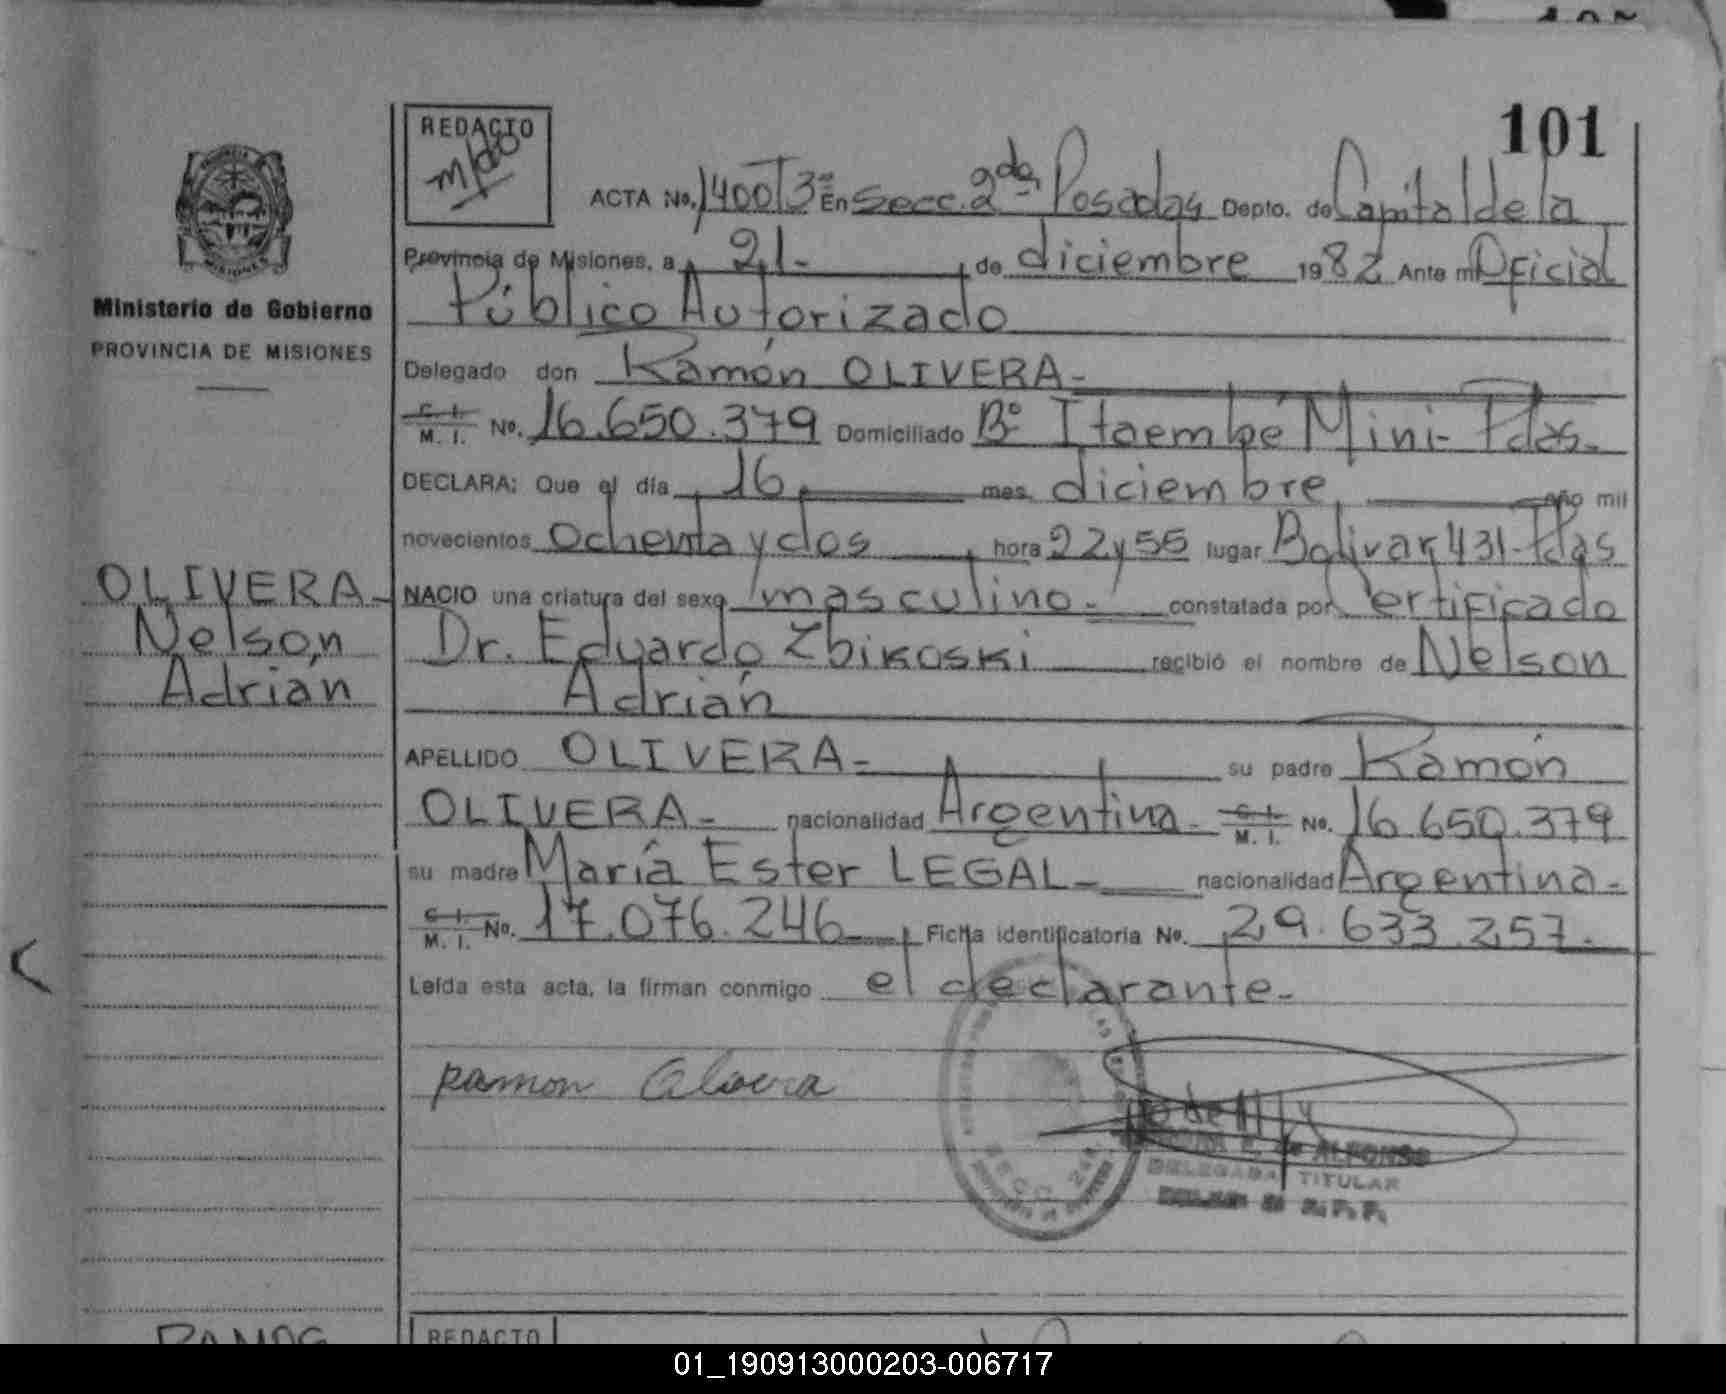 101
REDACTO
ACTA No. 1400 T3º En Secc. 2da Posadas Depto. de Capital de la
Provincia de Misiones, a 21- de diciembre 1982 Ante mi Oficial
Público Autorizado
Ministerio de Gobierno
PROVINCIA DE MISIONES
Delegado don Ramón OLIVERA-
C. I. M. I. No. 16.650.379 Domiciliado Bº Itaembé Mini- Pdas.
DECLARA: Que el día 16 mes diciembre año mil
novecientos ochenta y dos hora 22 y 55 lugar Bolivar 431- Pdas
OLIVERA-
Nelson
Adrián
NACIO una criatura del sexo masculino.- constatada por Certificado
Dr. Eduardo Zbikoski recibió el nombre de Nelson
Adrián
APELLIDO OLIVERA- su padre Ramón
OLIVERA- nacionalidad Argentina- C. I. M. I. No. 16.650.379
su madre María Ester LEGAL- nacionalidad Argentina.
C. I. M. I. No. 17.076.246 Ficha identificatoria No. 29.633.257.
Leída esta acta, la firman conmigo el declarante.
Ramon Olivera
SECC. 2da
de ALFONSO
DELEGADA TITULAR
RAMOS
REDACTO
01_190913000203-006717